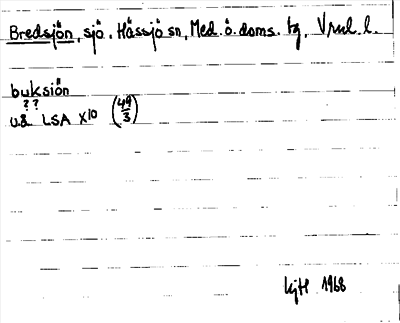 Bredsjön, sjö, Hässjö sn, Med. ö. doms. tg, Vrnl. l.
buksiön
? ?
u.å. LSA X10 (49/3)
KjH 1968